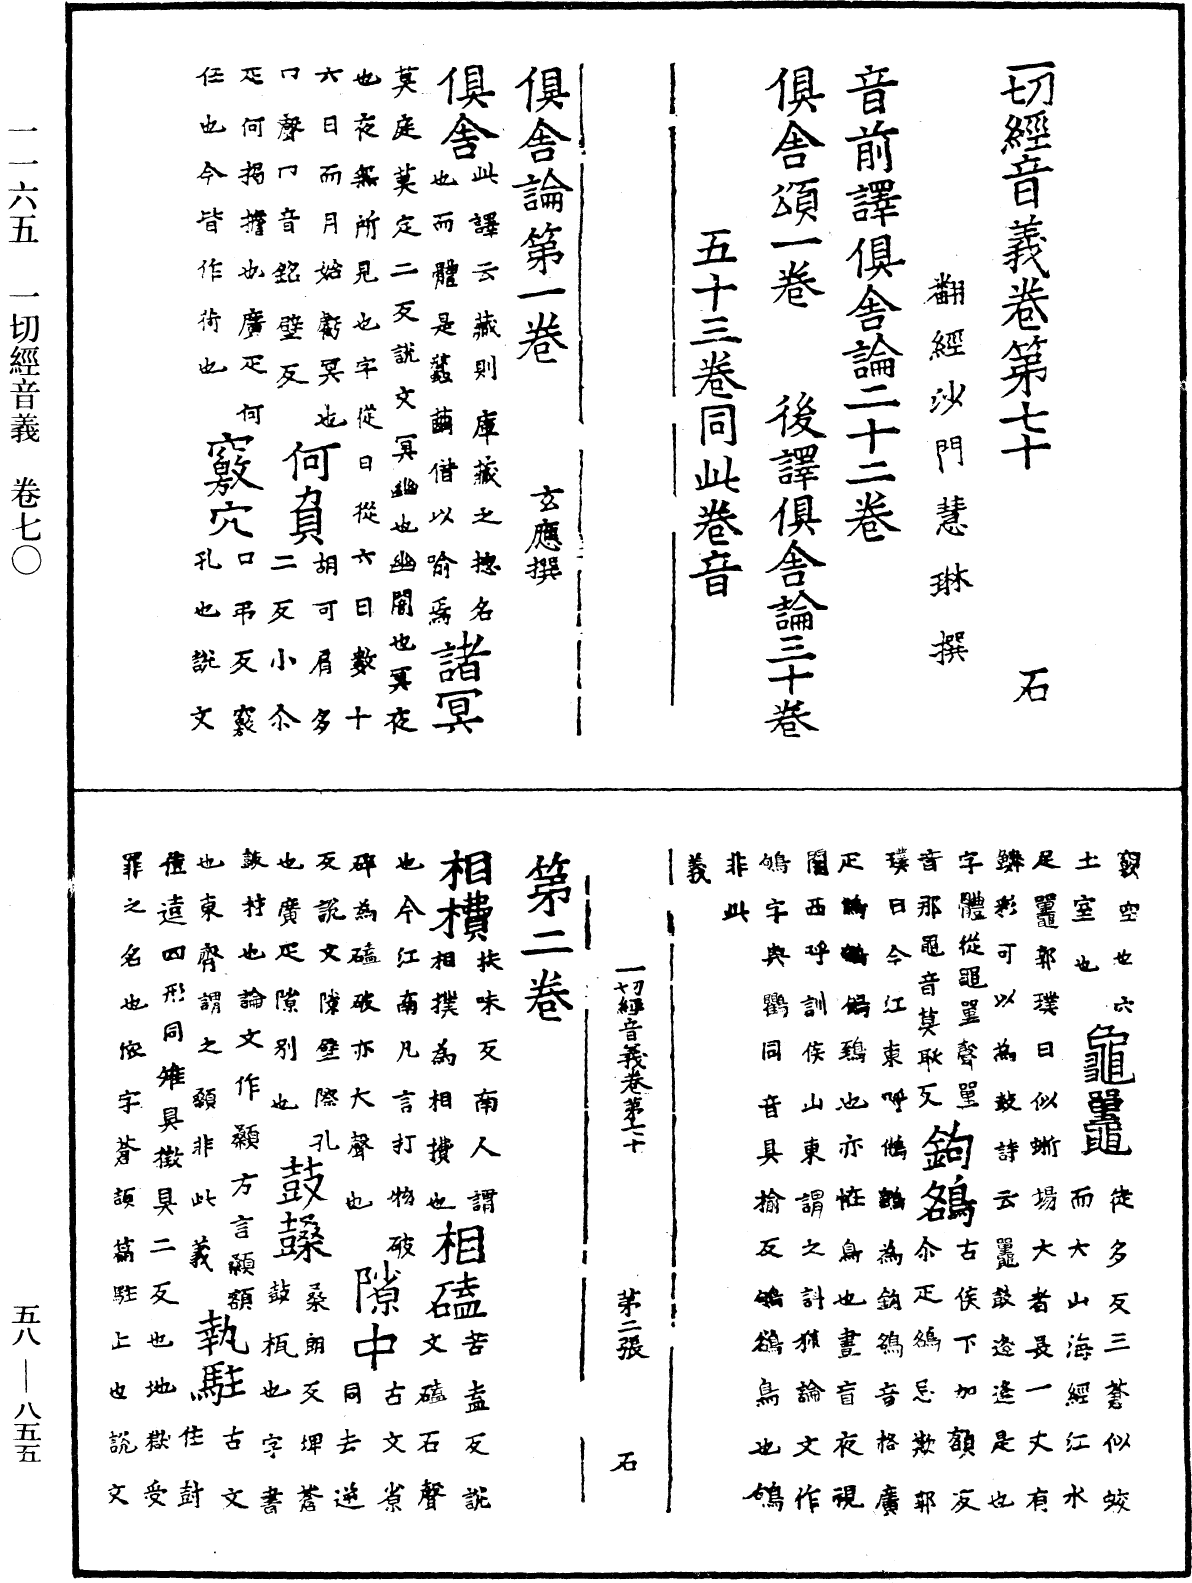 一切經音義卷第七十 石
翻經沙門慧琳撰
音前譯俱舍論二十二卷
俱舍頌一卷 後譯俱舍論三十卷
五十三卷同此卷音
俱舍論第一卷 玄應撰
俱舍 此譯云藏則庫藏之揔名也而體是蠶繭借以喻焉 諸冥
莫庭莫定二反說文冥幽也幽闇也冥夜
也夜無所見也字從日從六日數十
六日而月始虧冥也
冂聲冂音銘壁反 何負 胡可肩多二反小尒
疋何揭擔也廣疋何
任也今皆作荷也 竅穴 口弔反竅孔也說文
竅空也六
土室也 黿鼉 徒多反三蒼似蛟而大山海經江水
足鼉郭璞曰似蜥場大者長一丈有
鱗彩可以為鼓詩云鼉鼓逄逄是也
字體從黽單聲單
音那黽音莫耿反 鉤鵅 古侯下加額反尒疋鵅忌欺郭
璞曰今江東呼鵂鶹為鉤鵅音格廣
疋鵂鶹鳩鵄也亦恠鳥也晝盲夜視
關西呼訓侯山東謂之訓狐論文作
鴝字與鸜同音具揄反鴝鵒鳥也鴝
非此
義
一切經音義卷第七十 第二張 石
第二卷
相樻 扶味反南人謂相撲為相攢也 相磕 苦盍反說文磕石聲
也今江南凡言打物破
碎為磕破亦大聲也 隙中 古文𡭽同去逆
反說文隙壁際孔
也廣疋隙別也 鼓顙 桑朗反埤蒼鼓柢也字書
鼓材也論文作顙方言顙額
也東齊謂之顙非此義 執駐 古文
住封
值遠四形同雉具徵具二反也地獄受
罪之名也依字蒼頡篇駐上也說文
一一六五 一切經音義 卷七〇
五八—八五五